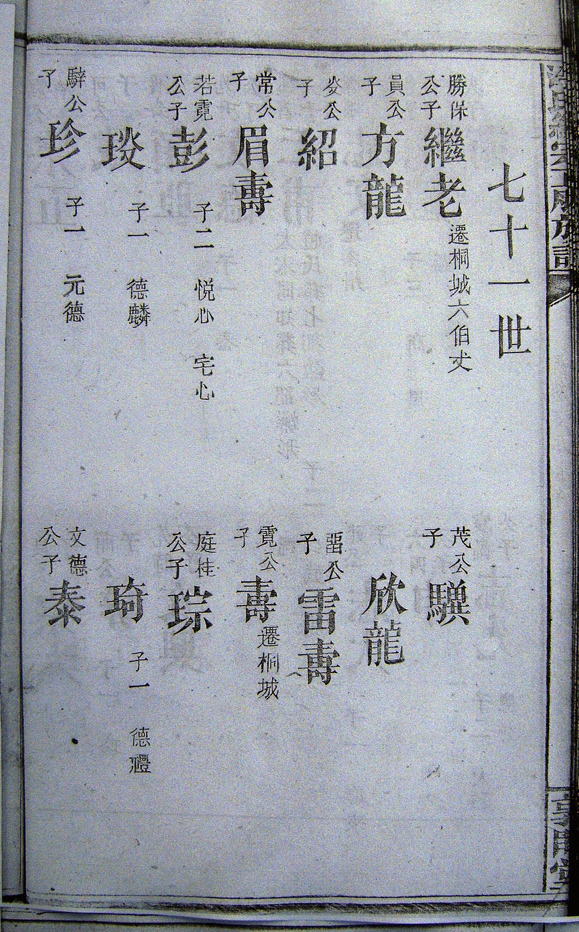 七十一世
勝保公子 繼老 遷桐城六伯丈
茂公子 驥
員公子 方龍
欣龍
公子 紹
公子 雷壽
常公子 眉壽
霓公子 壽 遷桐城
若霓公子 彭 子二 悦心 宅心
庭桂公子 琮
琰 子一 德麟
琦 子一 德禮
駢公子 珍 子一 元德
文德公子 泰